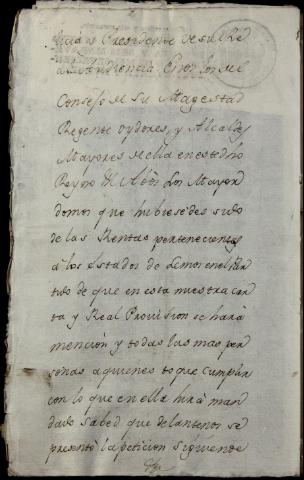 Presidente de su Rl
Audiencia Enos los del
Consejo de Su Magestad
Regente oydores, y Alcaldes
Mayores de ella en este dho
Reyno A Vos Los Mayor
domos que hubiesedes sido
de las Rentas pertenecientes
a los Estados de Lemos en el par
tido de que en esta nuestra car
ta y Real Provision se hará
mención y todas las mas per
sonas a quienes toque cumplir
con lo que en ella hirá man
dado sabed que delantenos se
presentó la peticion siguiente